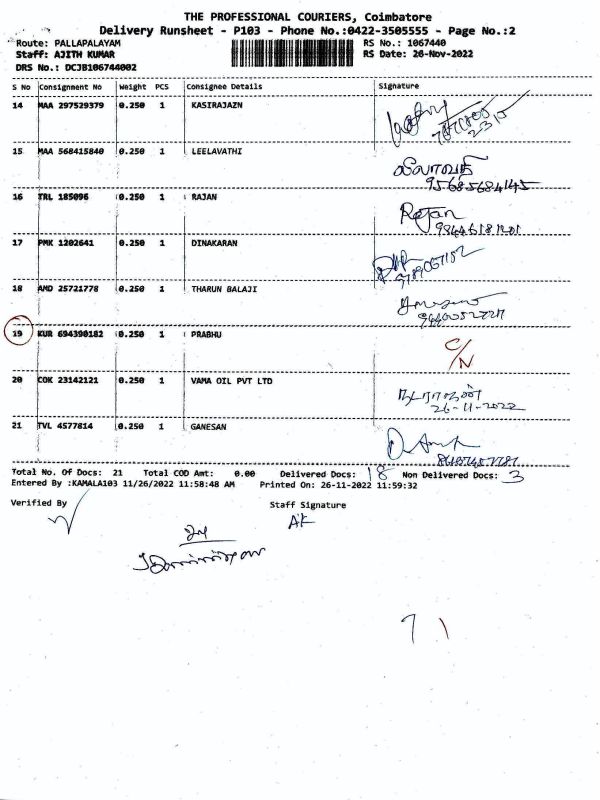 THE PROFESSIONAL COURIERS, Coimbatore
Delivery Runsheet - P103 - Phone No.:0422-3505555 - Page No.:2
Route: PALLAPALAYAM RS No.: 1067440
Staff: AJITH KUMAR RS Date: 26-Nov-2022
DRS No.: DCJB106744002
S No Consignment No Weight PCS Consignee Details Signature
14 MAA 297529379 0.250 1 KASIRAJAZN
15 MAA 568415840 0.250 1 LEELAVATHI
லீலாவதி
95685684145
16 TRL 185096 0.250 1 RAJAN
Rajan
17 PMK 1202641 0.250 1 DINAKARAN
18 AMD 25721778 0.250 1 THARUN BALAJI
19 KUR 694390182 0.250 1 PRABHU
C/N
20 COK 23142121 0.250 1 VAMA OIL PVT LTD
26-11-2022
21 TVL 4577814 0.250 1 GANESAN
Total No. Of Docs: 21 Total COD Amt: 0.00 Delivered Docs: 18 Non Delivered Docs: 3
Entered By :KAMALA103 11/26/2022 11:58:48 AM Printed On: 26-11-2022 11:59:32
Verified By Staff Signature
AK